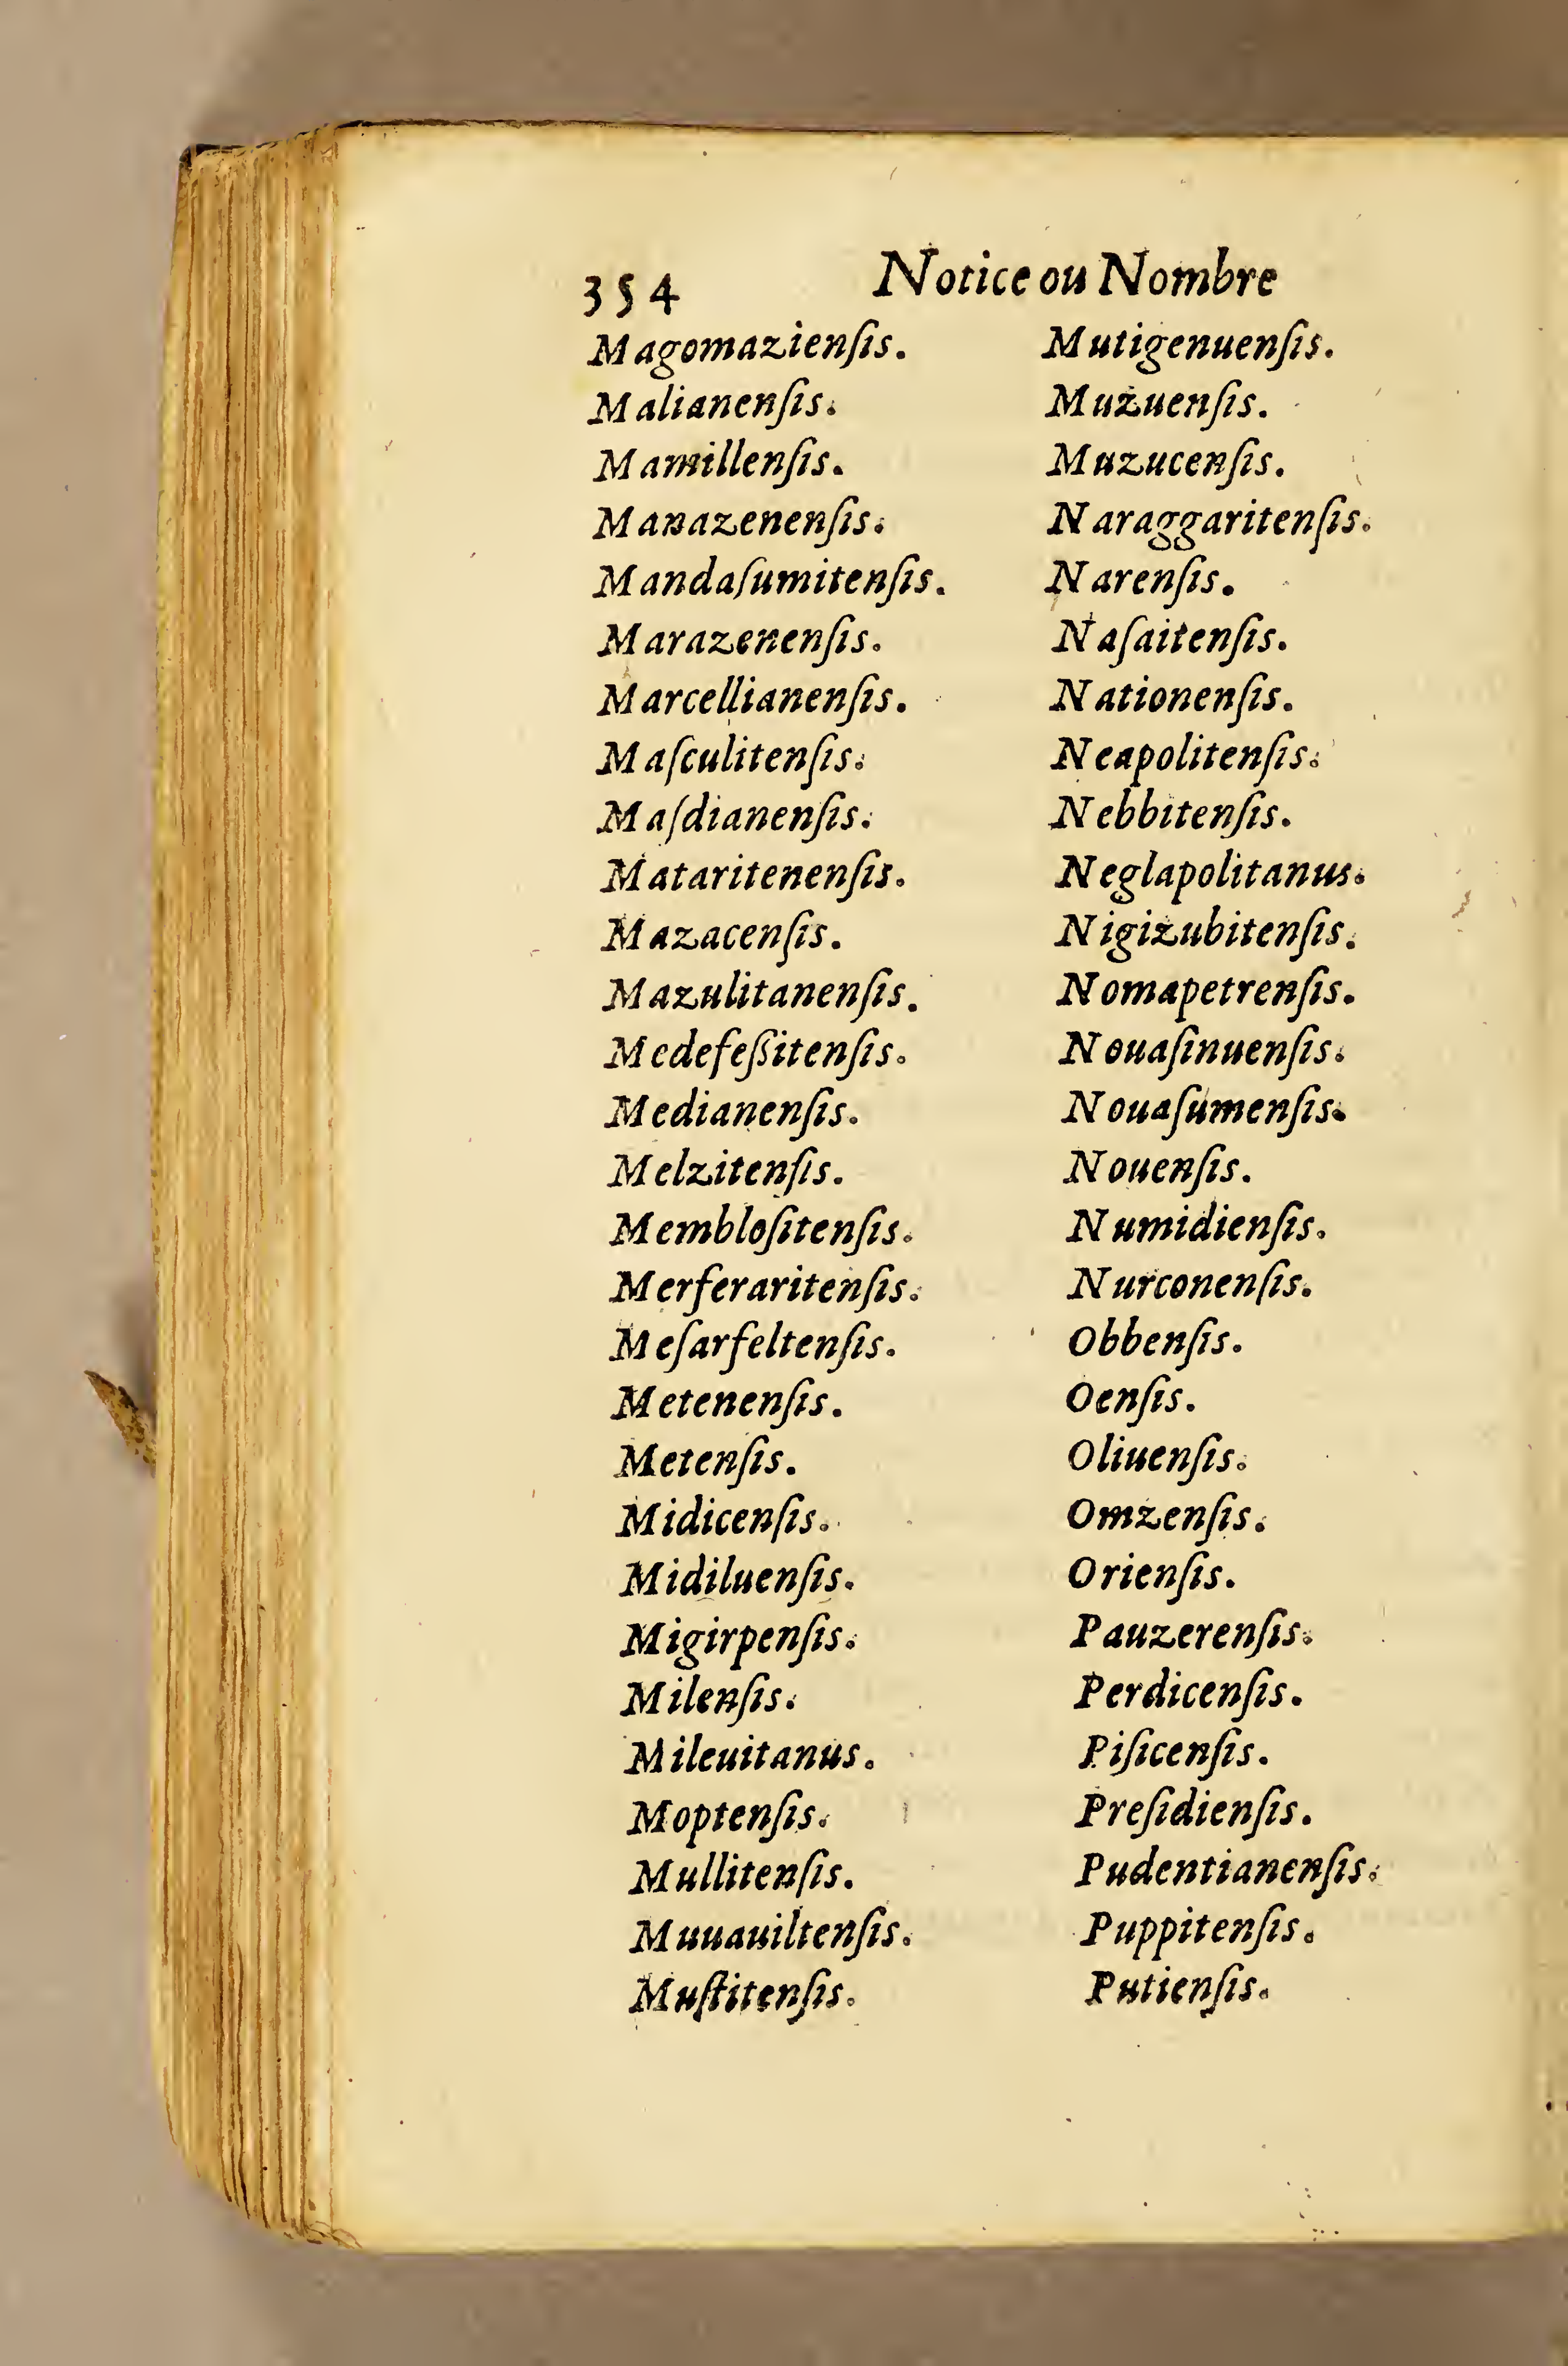 354 Notice ou Nombre
Magomazienſis.
Malianenſis.
Mamillenſis.
Manazenenſis.
Mandaſumitenſis.
Marazenenſis.
Marcellianenſis.
Maſculitenſis.
Maſdianenſis.
Mataritenenſis.
Mazacenſis.
Mazulitanenſis.
Medefeſsitenſis.
Medianenſis.
Melzitenſis.
Membloſitenſis.
Merferaritenſis.
Meſarfeltenſis.
Metenenſis.
Metenſis.
Midicenſis.
Midiluenſis.
Migirpenſis.
Milenſis.
Mileuitanus.
Moptenſis.
Mullitenſis.
Muuauiltenſis.
Muſtitenſis.
Mutigenuenſis.
Muzuenſis.
Muzucenſis.
Naraggaritenſis.
Narenſis.
Naſaitenſis.
Nationenſis.
Neapolitenſis.
Nebbitenſis.
Neglapolitanus.
Nigizubitenſis.
Nomapetrenſis.
Nouaſinuenſis.
Nouaſumenſis.
Nouenſis.
Numidienſis.
Nurconenſis.
Obbenſis.
Oenſis.
Oliuenſis.
Omzenſis.
Orienſis.
Pauzerenſis.
Perdicenſis.
Piſicenſis.
Preſidienſis.
Pudentianenſis.
Puppitenſis.
Putienſis.